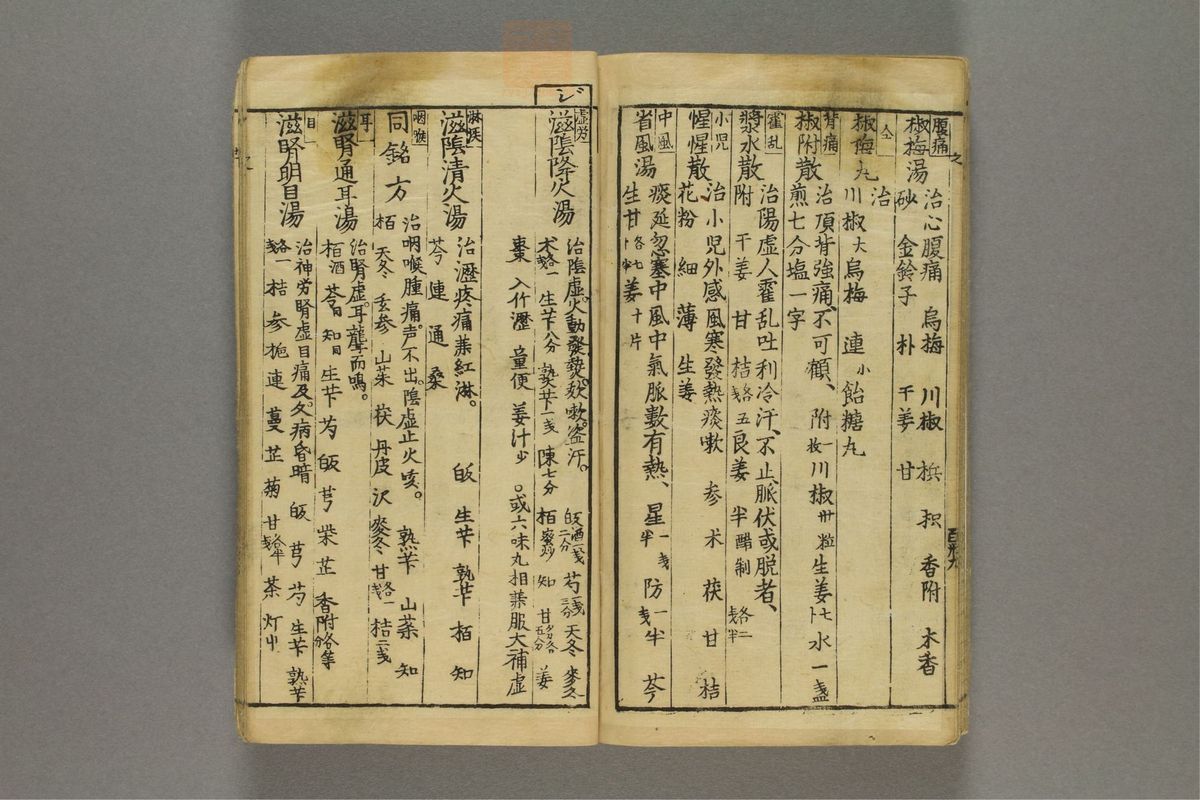 腹痛
椒梅湯 治心腹痛 烏梅 川椒 梹 枳 香附 木香
砂 金鈴子 朴 干姜 甘
仝
椒梅丸 治
川椒大 烏梅 連小 飴糖丸
背痛
椒附散 治頂背強痛、不可顧、 附一枚 川椒卅粒 生姜七卜 水一盞
煎七分塩一字
霍乱
漿水散 治陽虚人霍乱吐利冷汗、不止脈伏或脱者、
附 干姜 甘 桔各五戔 良姜 半醋制各二戔半
小児
惺惺散 治小児外感風寒發熱痰嗽 参 朮 茯 甘 桔
花粉 細 薄 生姜
中風
省風湯 痰延忽塞中風中氣脈數有熱、 星一戔半 防一戔半 芩
生甘各七卜半 姜十片
ジ
虚労
滋陰降火湯 治陰虚。火動發熱。欬嗽。盗汗。 皈酒一戔二分 芍一戔三分 天冬 麥冬
朮各一戔 生芐八分 熟芐一戔 陳七分 栢蜜炒 知 甘各五分 姜
棗 入竹瀝 童便 姜汁少 。或六味丸相兼服大補虚
淋疾
滋陰清火湯 治瀝疼痛兼紅淋。 皈 生芐 熟芐 栢 知
芩 連 通 桑
咽喉
同銘方 治咽喉腫痛。声不出。陰虚止火咳。 熟芐 山茱 知
栢 天冬 玄参 山茱 茯 丹皮 沢 麥冬 甘各一戔 桔二戔
耳
滋腎通耳湯 治腎虚。耳聾而鳴。
栢酒 芩同 知同 生芐 芍 皈 芎 柴 芷 香附各等分
目
滋腎明目湯 治神労腎虚目痛及。久病昏暗 皈 芎 芍 生芐 熟芐
各一戔 桔 参 栀 連 蔓 芷 菊 甘各半戔 茶 灯心